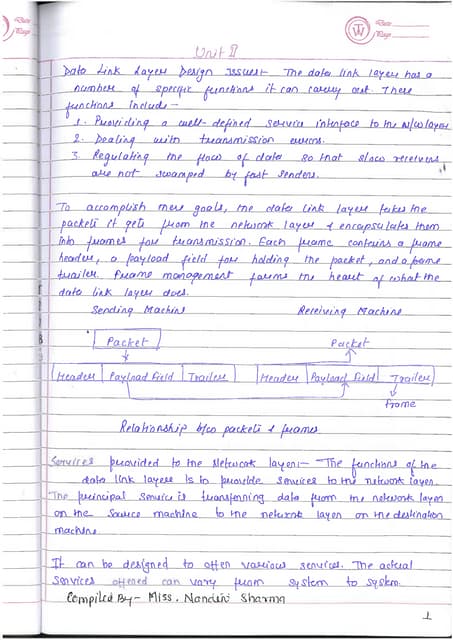 Date
Page
Unit II
Data Link Layer Design Issues:- The data link layer has a
number of specific functions it can carry out. These
functions include -
1. Providing a well-defined service interface to the N/W layer
2. Dealing with transmission errors.
3. Regulating the flow of data so that slow receivers
are not swamped by fast senders.
To accomplish these goals, the data link layer takes the
packets it gets from the network layer & encapsulates them
into frames for transmission. Each frame contains a frame
header, a payload field for holding the packet, and a frame
trailer. Frame management forms the heart of what the
data link layer does.
Sending Machine Receiving Machine
Packet Packet
Header Payload field Trailer Header Payload field Trailer
frame
Relationship b/w packets & frames
Services provided to the Network layer:- The functions of the
data link layer is to provide services to the network layer.
The principal service is transferring data from the network layer
on the source machine to the network layer on the destination
machine
It can be designed to offer various services. The actual
services offered can vary from system to system.
Compiled By- Miss. Nandini Sharma
1